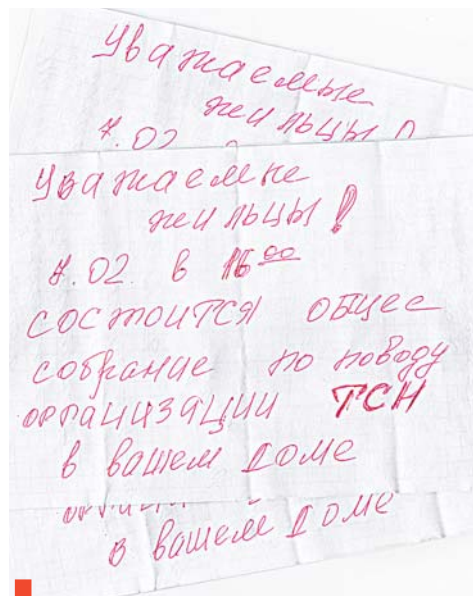 Уважаемые
жильцы!
7.02
Уважаемые
жильцы!
7.02. в 16 00
состоится общее
собрание по поводу
организации ТСН
в вашем доме
в вашем доме